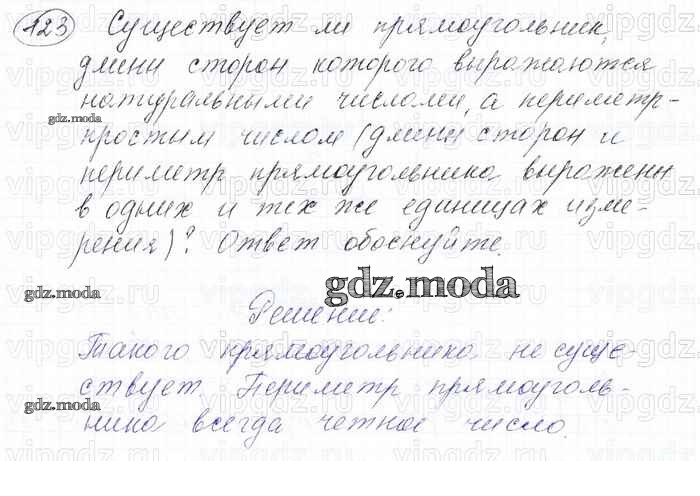 123 Существует ли прямоугольник,
длини сторон которого выражаются
натуральными числами, а периметр-
простым числом (длини сторон и
периметр прямоугольника выражени
в одних и тех же единицах изме-
рения)? Ответ обоснуйте.
gdz.moda
gdz.moda
gdz.moda
Решение:
Такого прямоугольника не суще-
ствует. Периметр прямоуголь-
gdz.moda
ника всегда четное число.